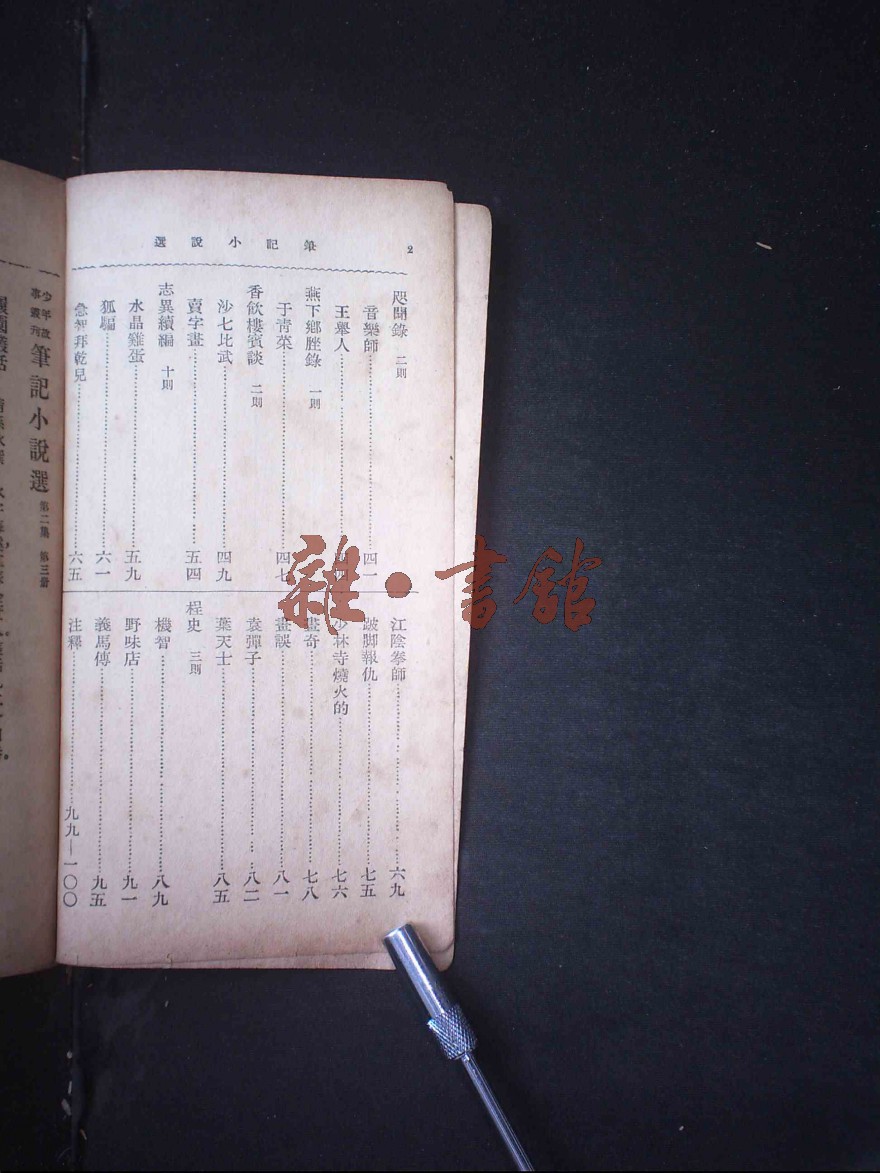 筆記小說選
2
咫聞錄 二則
音樂師 四一
王舉人
燕下鄉脞錄 一則
于青菜 四七
香飲樓賓談 二則
沙七比武 四九
賣字畫 五四
志異續編 十則
水晶雞蛋 五九
狐騙 六一
急智拜乾兒 六五
江陰拳師 六九
跛脚報仇 七五
少林寺燒火的 七六
畫奇 七八
畫誤 八一
袁彈子 八二
葉天士 八五
桯史 三則
機智 八九
野味店 九一
義馬傳 九五
注釋 九九—一〇〇
少年故事叢刊 筆記小說選 第二集 第三册
雜·書館